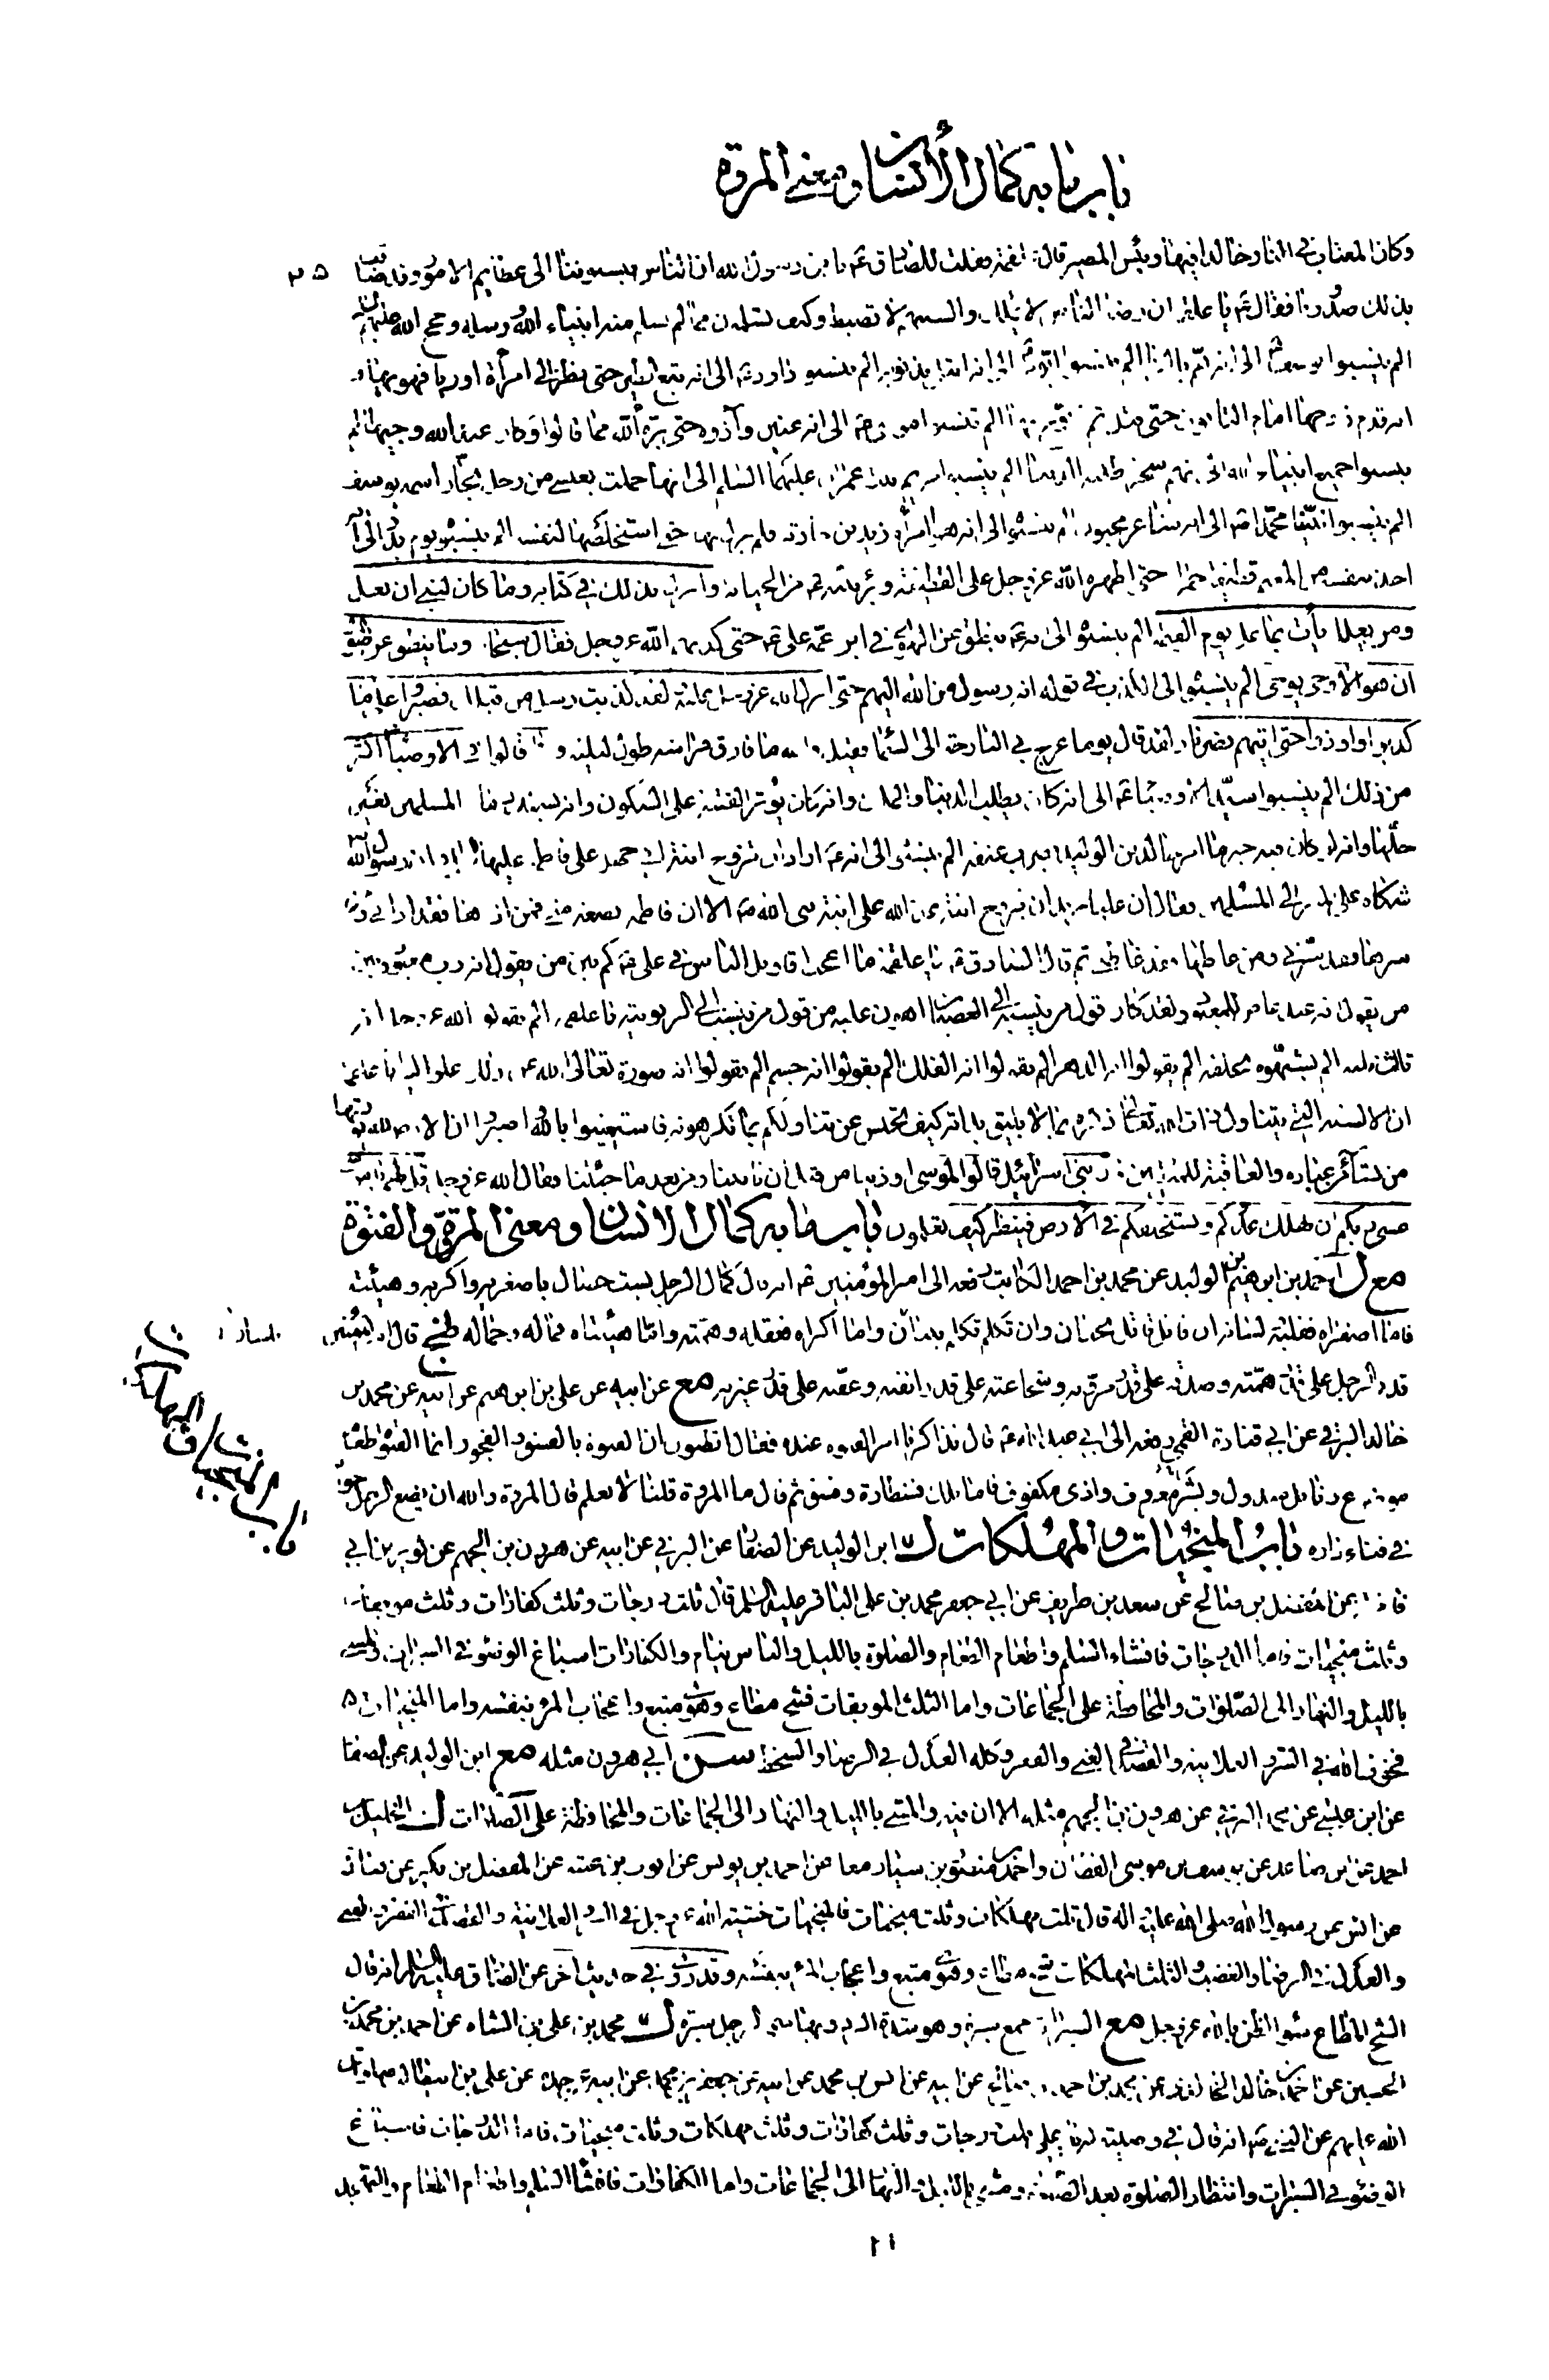 باب ما به كمال الأنسان ومعنى المروة
وكان المغتاب في النار خالدا فيها وبئس المصير قال علقمة فقلت للصادق ع يا بن رسول الله ان الناس ينسبوننا الى عظايم الامور وقد ضاقت
بذلك صدورنا فقال ع يا علقمة ان رضا الناس لا يملك والسنتهم لا تضبط وكيف تسلمون مما لم يسلم منه انبياء الله ورسله وحجج الله عليهم السلم
الم ينسبوا يوسف الى انه هم بالزنا الم ينسبوا ايوب الى انه ابتلي بذنوبه الم ينسبوا داود الى انه تبع الطير حتى نظر الى امرأة اوريا فهويها وانه
قدم زوجها امام التابوت حتى قتل ثم تزوج بها الم ينسبوا موسى الى انه عنين وآذوه حتى برأه الله مما قالوا وكان عند الله وجيها الم
ينسبوا جميع انبياء الله الى انهم سحرة طلبة الدنيا الم ينسبوا مريم بنت عمران عليهما السلم الى انها حملت بعيسى من رجل نجار اسمه يوسف
الم ينسبوا نبينا محمدا ص الى انه شاعر مجنون الم ينسبوه الى انه هوى امرأة زيد بن حارثة فلم يزل بها حتى استخلصها لنفسه الم ينسبوه يوم بدر الى انه
اخذ لنفسه من المغنم قطيفة حمراء حتى اظهره الله عز وجل على القطيفة وبرأ نبيه ص من الخيانة وانزل بذلك في كتابه وما كان لنبي ان يغل
ومن يغلل يأت بما غل يوم القيمة الم ينسبوه الى انه ص ينطق عن الهوى في ابن عمه علي ع حتى كذبهم الله عز وجل فقال سبحانه وما ينطق عن الهوى
ان هو الا وحي يوحى الم ينسبوه الى الكذب في قوله انه رسول من الله اليهم حتى انزل الله عز وجل عليه ولقد كذبت رسل من قبلك فصبروا على ما
كذبوا واوذوا حتى اتيهم نصرنا ولقد قال يوما عرج بي البارحة الى السماء فقيل والله ما فارق فراشه طول ليلته وما قالوا في الاوصياء اكثر
من ذلك الم ينسبوا سيد الاوصياء ع الى انه كان يطلب الدنيا والملك وانه كان يؤثر الفتنة على السكون وانه يسفك دماء المسلمين بغير
حلها وانه لو كان فيه خير ما امر خالد بن الوليد بضرب عنقه الم ينسبوه الى انه ع اراد ان يتزوج ابنة ابي جهل على فاطمة عليها السلم وان رسول الله
شكاه على المنبر الى المسلمين فقال ان عليا يريد ان يتزوج ابنة عدو الله على ابنة نبي الله ص الا ان فاطمة بضعة مني فمن اذاها فقد اذاني ومن
سرها فقد سرني ومن غاظها فقد غاظني ثم قال الصادق ع يا علقمة ما اعجب اقاويل الناس في علي ع كم بين من يقول انه رب معبود وبين
من يقول انه عبد عاص للمعبود ولقد كان قول من ينسبه الى العصيان اهون عليه من قول من ينسبه الى الربوبية يا علقمة الم يقولوا الله عز وجل انه
ثالث ثلثة الم يشبهوه بخلقه الم يقولوا انه الدهر الم يقولوا انه الفلك الم يقولوا انه جسم الم يقولوا انه صورة تعالى الله عن ذلك علوا كبيرا يا علقمة
ان الالسنة التي يتناول ذات الله تعالى ذكره بما لا يليق بذاته كيف تحبس عن تناولكم بما تكرهونه فاستعينوا بالله واصبروا ان الارض لله يورثها
من يشاء من عباده والعاقبة للمتقين فان بني اسرائيل قالوا لموسى اوذينا من قبل ان تأتينا ومن بعد ما جئتنا فقال الله عز وجل قل لهم يا موسى
عسى ربكم ان يهلك عدوكم ويستخلفكم في الارض فينظر كيف تعملون باب ما به كمال الانسان ومعنى المروة والفتوة
مع ل احمد بن ابرهيم بن الوليد عن محمد بن احمد الكاتب رفعه الى امير المؤمنين ع انه قال كمال الرجل بست خصال باصغريه واكبريه وهيئتيه
فاما اصغراه فقلبه ولسانه ان قاتل قاتل بجنان وان تكلم تكلم ببيان واما اكبراه فعقله وهمته واما هيئتاه فماله وجماله نهج قال امير المؤمنين
قدر الرجل على قدر همته وصدقه على قدر مروته وشجاعته على قدر انفته وعفته على قدر غيرته مع عن ابيه عن علي بن ابرهيم عن ابيه عن محمد بن
خالد البرقي عن ابي قتادة القمي رفعه الى ابي عبد الله ع قال تذاكرنا امر الفتوة عنده فقال اتظنون ان الفتوة بالفسوق والفجور انما الفتوة طعام
موضوع ونائل مبذول وبشر معروف واذى مكفوف فاما تلك فشطارة وفسق ثم قال ما المروة قلنا لا نعلم قال المروة والله ان يضع الرجل خوانه
في فناء داره باب المنجيات والمهلكات ل ابن الوليد عن الصفار عن البرقي عن ابيه عن هرون بن الجهم عن ثوير بن ابي
فاختة عن المفضل بن صالح عن سعد بن طريف عن ابي جعفر محمد بن علي الباقر عليه السلم قال ثلث درجات وثلث كفارات وثلث موبقات
وثلث منجيات فاما الدرجات فافشاء السلم واطعام الطعام والصلوة بالليل والناس نيام والكفارات اسباغ الوضوء في السبرات والمشي
بالليل والنهار الى الصلوات والمحافظة على الجماعات واما الثلث الموبقات فشح مطاع وهوى متبع واعجاب المرء بنفسه واما المنجيات
فخوف الله في السر والعلانية والقصد في الغنى والفقر وكلمة العدل في الرضا والسخط سن ابي هرون مثله مع ابن الوليد عن الصفار
عن ابن عيسى عن البرقي عن هرون بن الجهم مثله الا ان فيه والمشي بالليل والنهار الى الجماعات والمحافظة على الصلوات ل الخليل بن
احمد عن ابن صاعد عن يوسف بن موسى القطان واحمد بن منصور بن سيار معا عن احمد بن يونس عن ايوب بن عتبة عن الفضل بن بكير عن قتادة
عن انس عن رسول الله صلى الله عليه واله قال ثلث مهلكات وثلث منجيات فالمنجيات خشية الله عز وجل في السر والعلانية والقصد في الفقر والغنى
والعدل في الرضا والغضب والثلث المهلكات شح مطاع وهوى متبع واعجاب المرء بنفسه وقد روي في حديث آخر عن الصادق عليه السلم انه قال
الشح المطاع سوء الظن بالله عز وجل مع السبرات جمع سبرة وهو شدة البرد وبها سمي الرجل سبرة ل محمد بن علي بن الشاه عن احمد بن محمد بن
الحسين عن احمد بن خالد الخالدي عن محمد بن احمد بن صالح عن ابيه عن انس بن محمد عن ابيه عن جعفر بن محمد عن ابيه عن جده عن علي بن ابيطالب صلوات
الله عليهم عن النبي ص انه قال في وصيته له يا علي ثلث درجات وثلث كفارات وثلث مهلكات وثلث منجيات فاما الدرجات فاسباغ
الوضوء في السبرات وانتظار الصلوة بعد الصلوة ومشي بالليل والنهار الى الجماعات واما الكفارات فافشاء السلم واطعام الطعام والتهجد
باب المنجيات والمهلكات